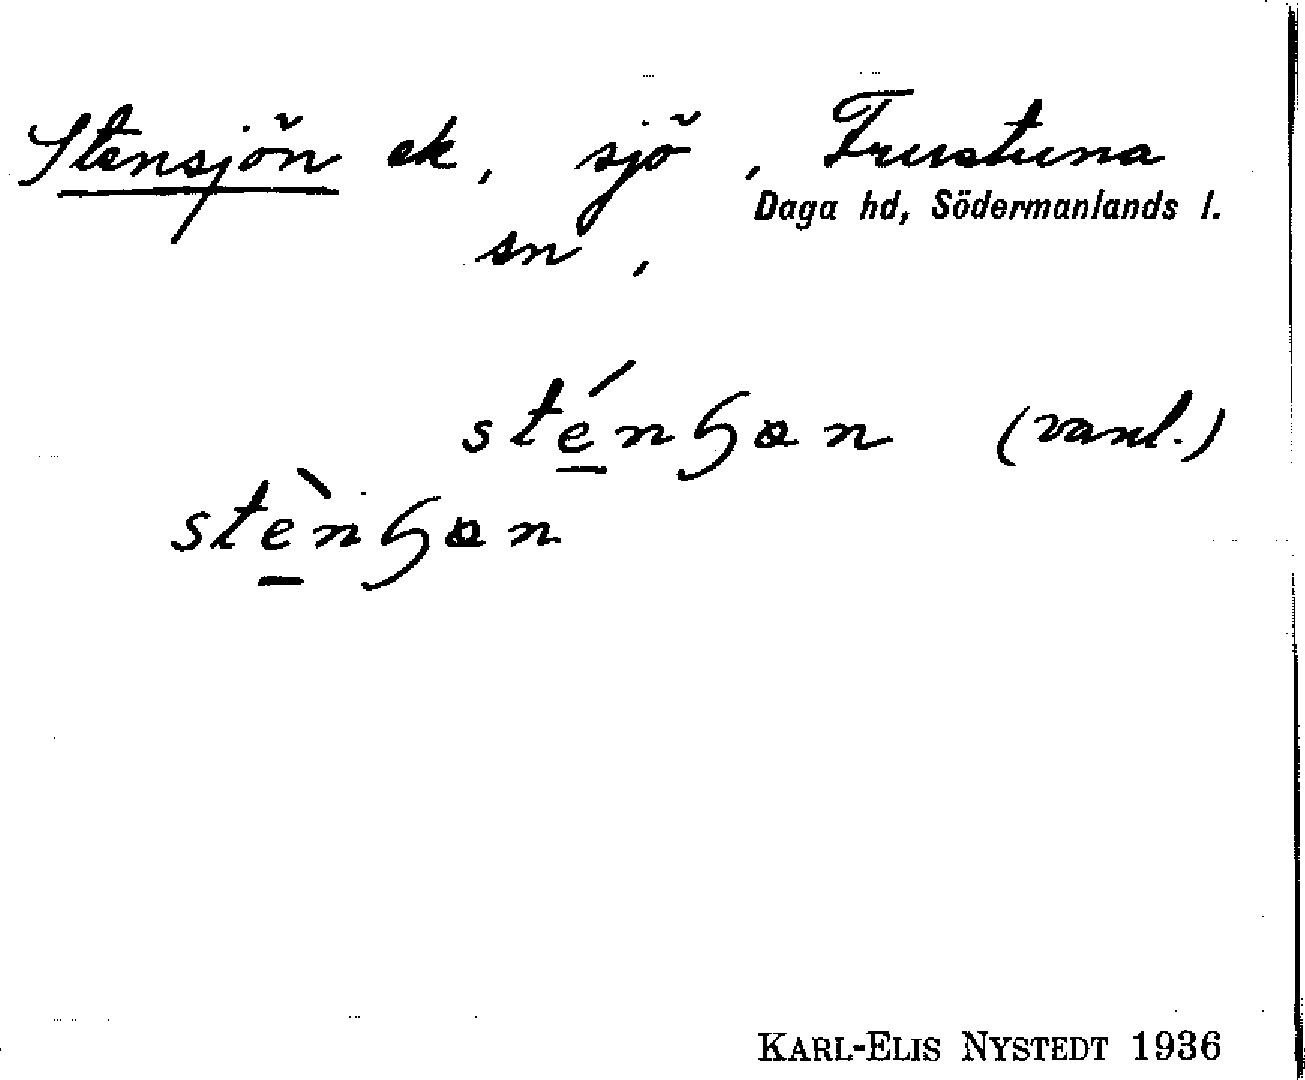 Stensjön ek, sjö, Frustuna
Daga hd, Södermanlands l.
sn,
sténꞕɷn (vanl.)
stènꞕɷn
KARL-ELIS NYSTEDT 1936